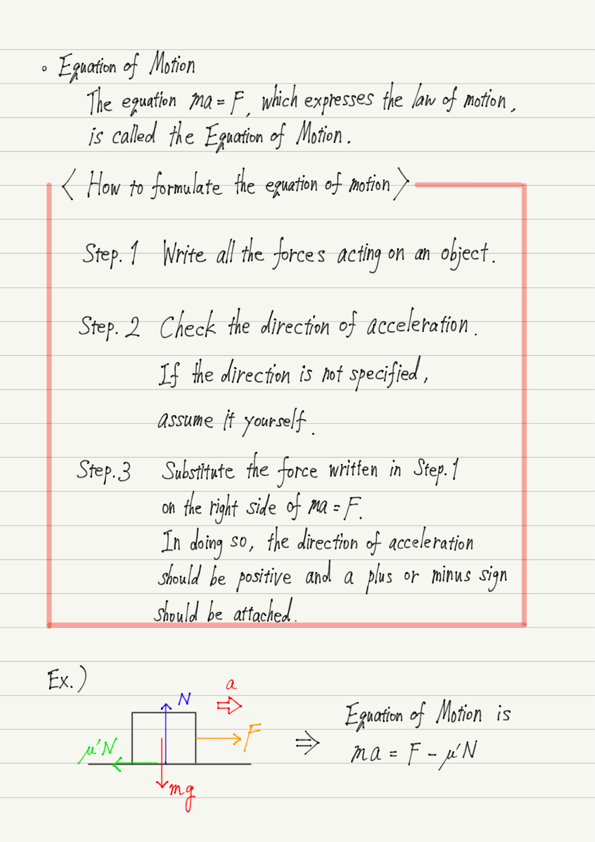 ◦ Equation of Motion
The equation ma = F, which expresses the law of motion,
is called the Equation of Motion.
〈 How to formulate the equation of motion 〉
Step. 1 Write all the forces acting on an object.
Step. 2 Check the direction of acceleration.
If the direction is not specified,
assume it yourself.
Step. 3 Substitute the force written in Step. 1
on the right side of ma = F.
In doing so, the direction of acceleration
should be positive and a plus or minus sign
should be attached.
Ex.)
a
N
F
μ'N
mg
⇒ Equation of Motion is
ma = F - μ'N